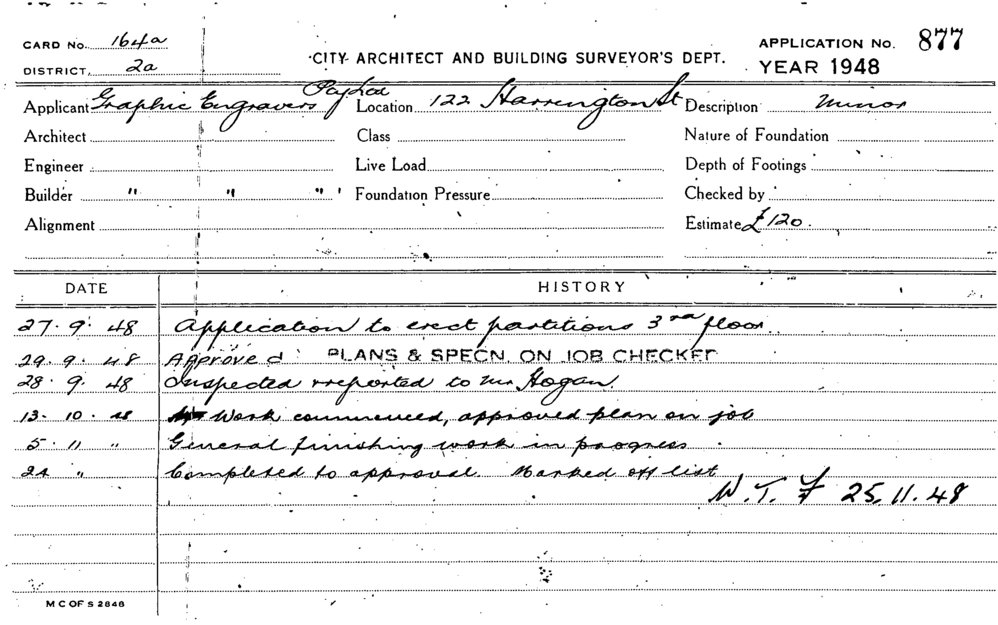 CARD No. 164a
DISTRICT. 2a
CITY ARCHITECT AND BUILDING SURVEYOR'S DEPT.
APPLICATION No. 877
YEAR 1948
Applicant Graphic Engravers Pty Ltd Location 122 Harrington St Description Minor
Architect Class Nature of Foundation
Engineer Live Load Depth of Footings
Builder " " " Foundation Pressure Checked by
Alignment Estimate £120.
DATE HISTORY
27. 9. 48 Application to erect partitions 3rd floor
29. 9. 48 Approved PLANS & SPECN. ON JOB CHECKED
28. 9. 48 Inspected & reported to Mr Hogan
13. 10. 48 Work commenced, approved plan on job
5. 11 " General finishing work in progress
24 " Completed to approval. Marked off list
W. T. F 25.11.48
M C OF S 2848